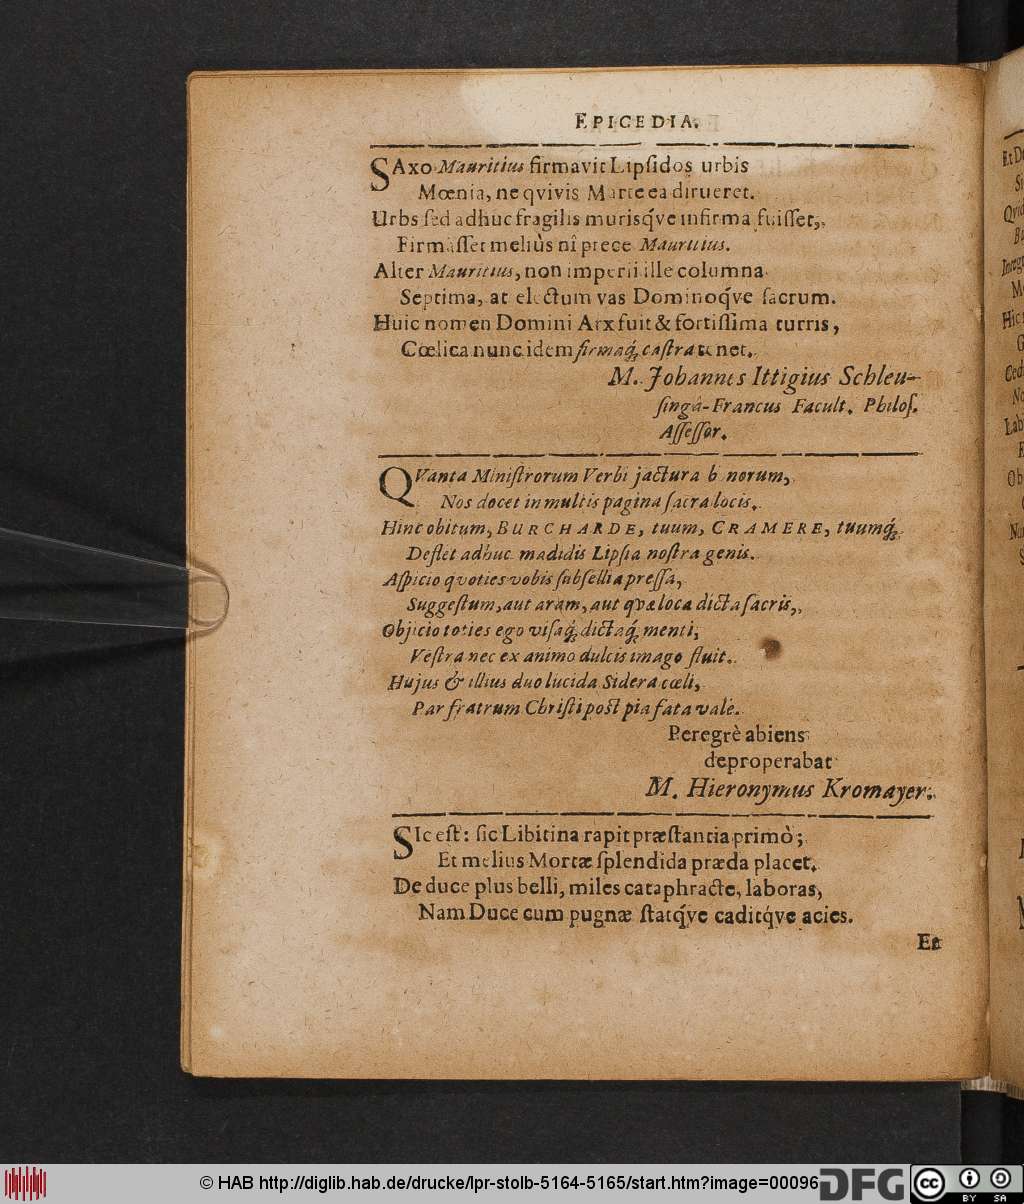 EPICEDIA.
SAxo Mauritius firmavit Lipſidos urbis
Mœnia, ne qvivis Marte ea dirueret.
Urbs ſed adhuc fragilis murisq́ve infirma fuiſſet,
Firmâſſet meliùs nî prece Mauritius.
Alter Mauritius, non imperii ille columna
Septima, at electum vas Dominoq́ve ſacrum.
Huic nomen Domini Arx fuit & fortiſſima turris,
Cœlica nunc idem firmaq́; caſtra tenet.
M. Johannes Ittigius Schleu-
ſingâ-Francus Facult. Philoſ.
Aſſeſſor.
QVanta Miniſtrorum Verbi jactura b norum,
Nos docet in multis pagina ſacra locis.
Hinc obitum, BURCHARDE, tuum, CRAMERE, tuumq́;
Deflet adhuc madidis Lipſia noſtra genis.
Aſpicio qvoties vobis ſubſellia preſſa,
Suggeſtum, aut aram, aut qvæ loca dicta ſacris,
Objicio toties ego viſaq́; dictaq́; menti,
Veſtra nec ex animo dulcis imago fluit.
Hujus & illius duo lucida Sidera cœli,
Par fratrum Chriſti poſt pia fata vale.
Peregrè abiens
deproperabat
M. Hieronymus Kromayer.
SIc eſt: ſic Libitina rapit præſtantia primò;
Et melius Mortæ ſplendida præda placet.
De duce plus belli, miles cataphracte, laboras,
Nam Duce cum pugnæ ſtatq́ve caditq́ve acies.
Et
© HAB http://diglib.hab.de/drucke/lpr-stolb-5164-5165/start.htm?image=00096
DFG
cc BY SA